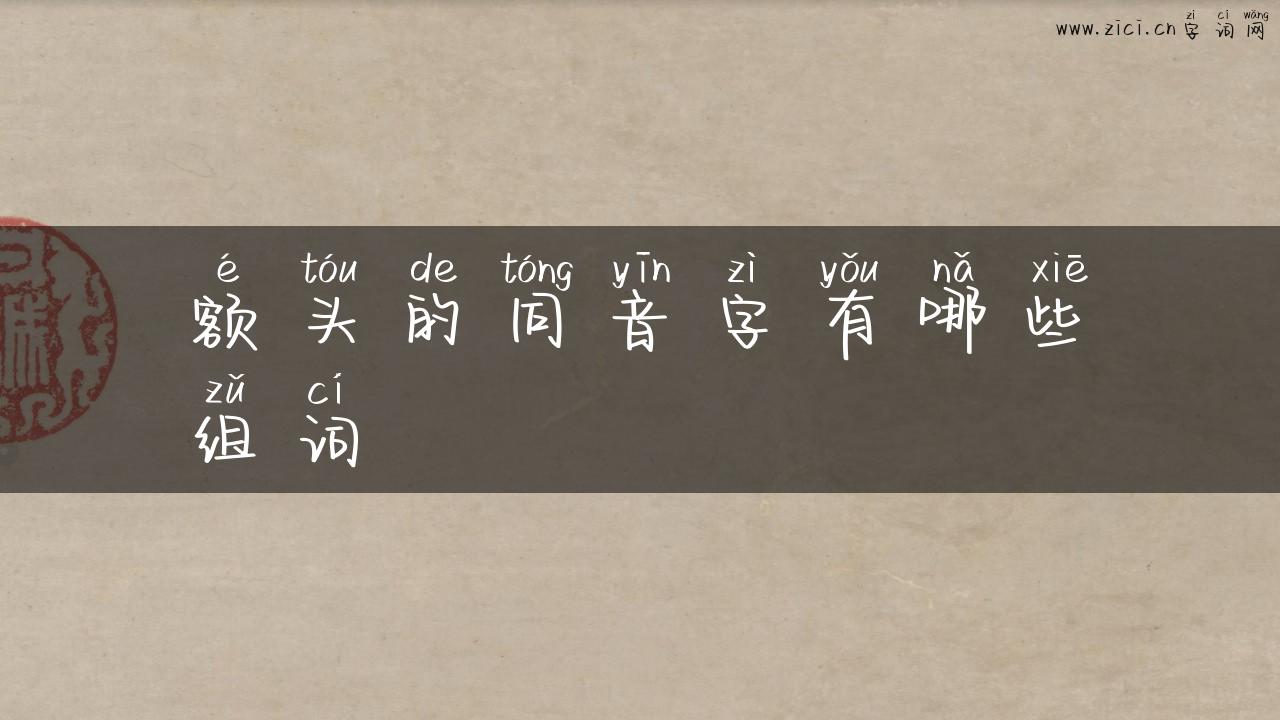 zì cí wǎng
www.zici.cn 字词网
é tóu de tóng yīn zì yǒu nǎ xiē
额头的同音字有哪些
zǔ cí
组词